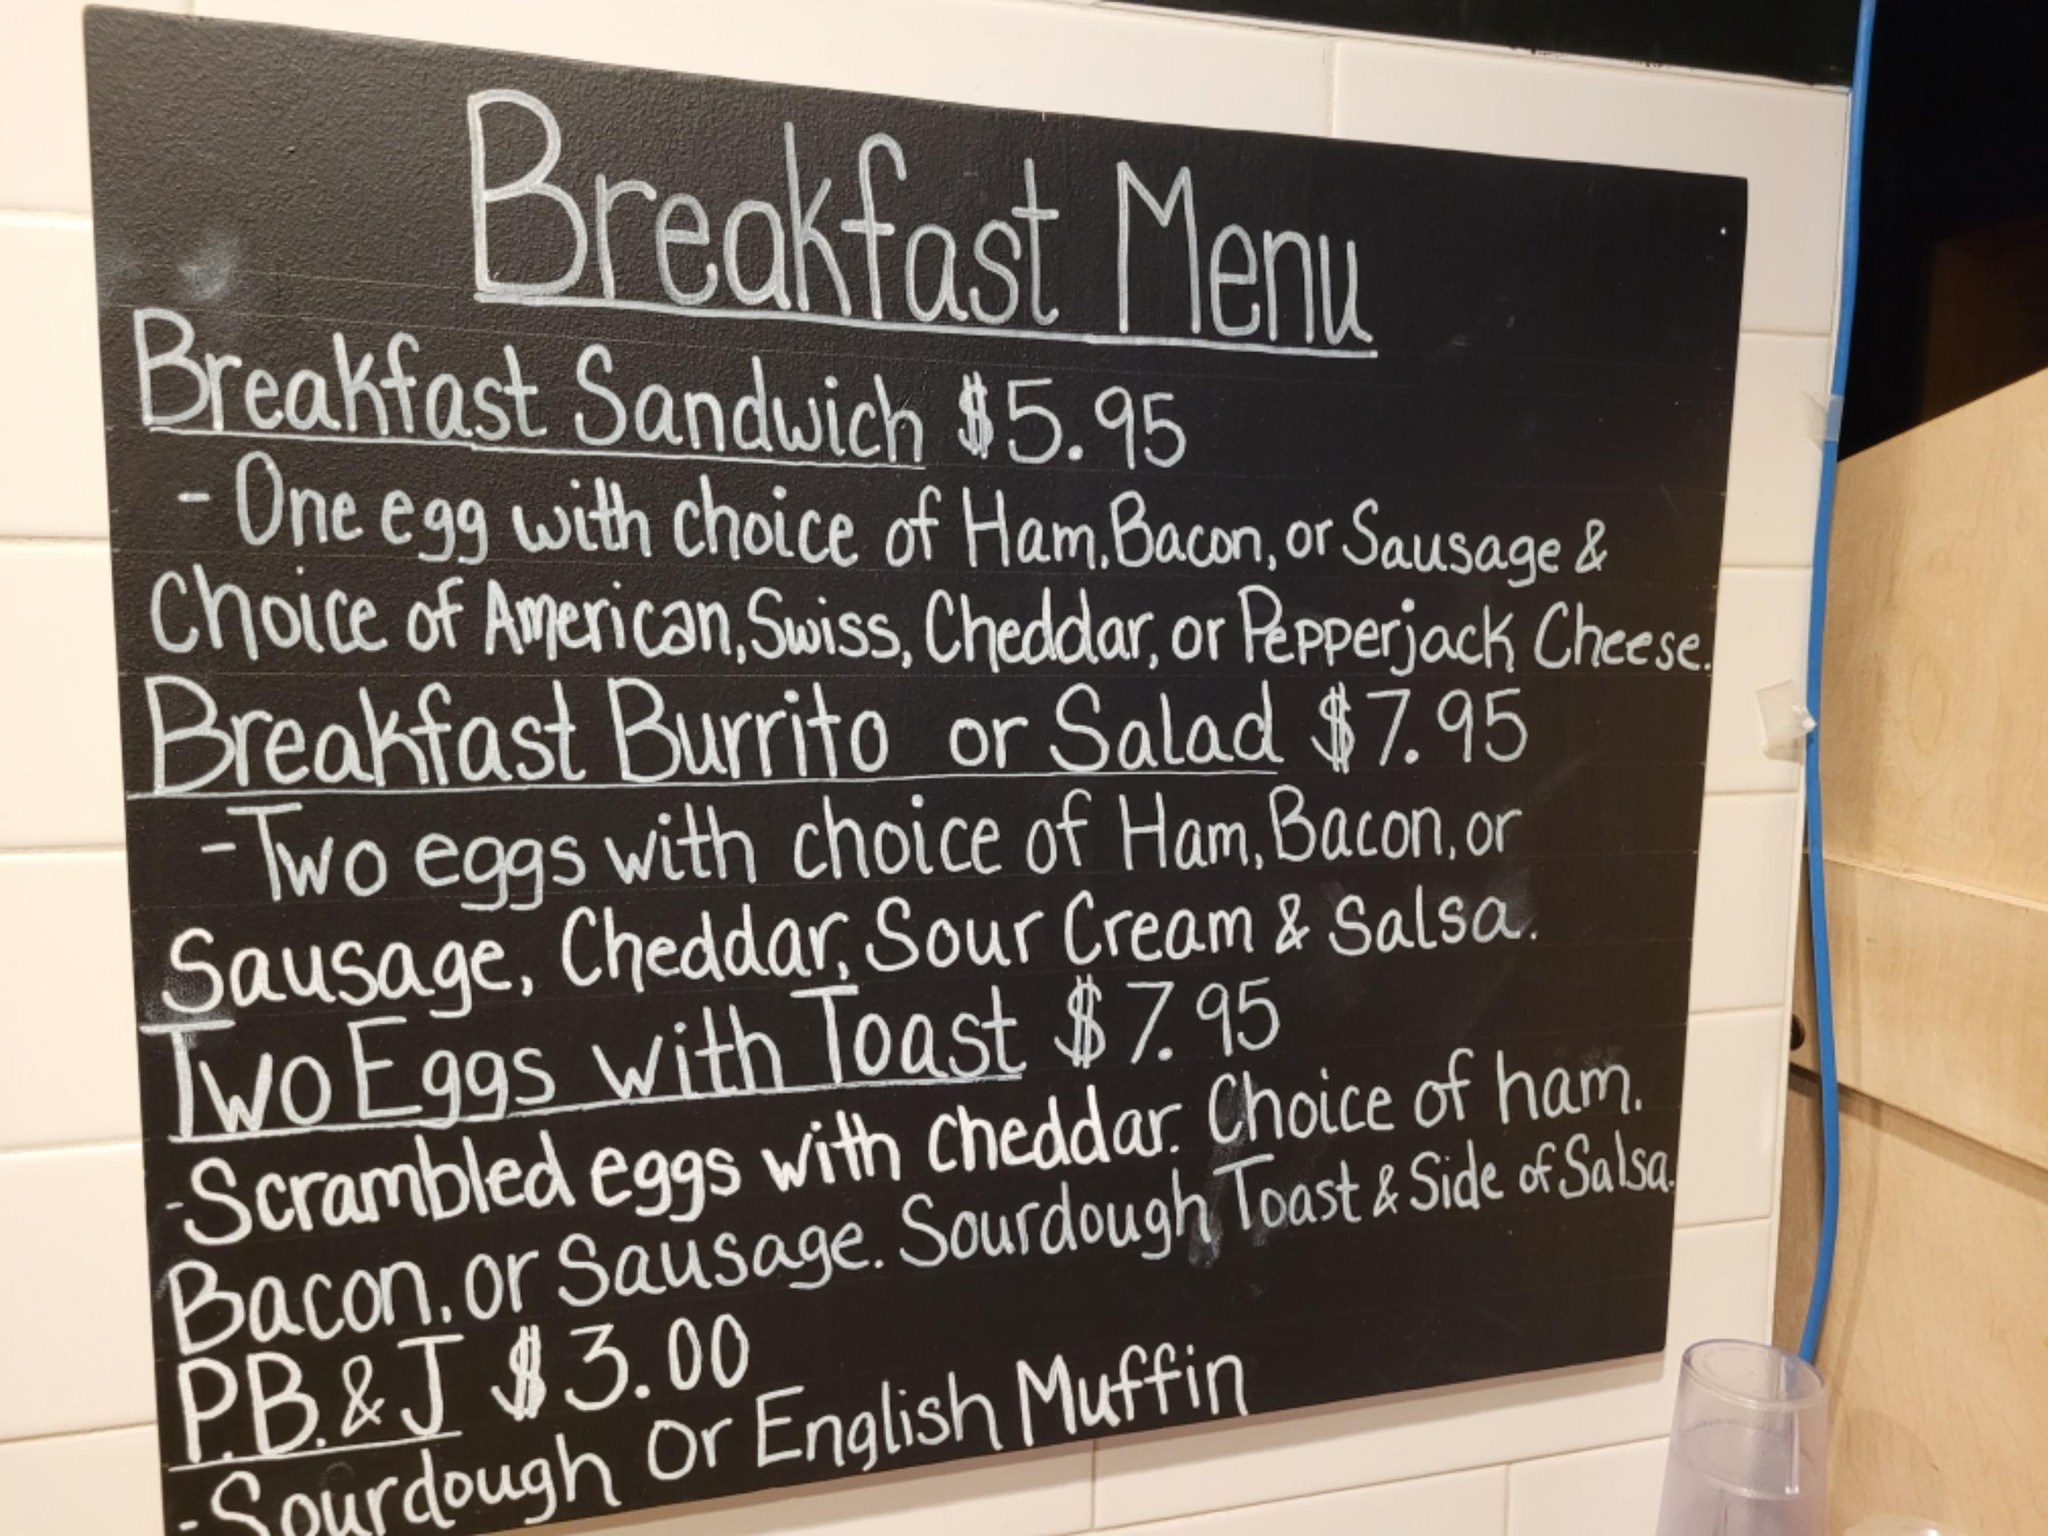 Breakfast Menu
Breakfast Sandwich $5.95
- One egg with choice of Ham, Bacon, or Sausage &
Choice of American, Swiss, Cheddar, or Pepperjack Cheese.
Breakfast Burrito or Salad $7.95
- Two eggs with choice of Ham, Bacon, or
Sausage, Cheddar, Sour Cream & Salsa.
Two Eggs with Toast $7.95
-Scrambled eggs with cheddar. Choice of ham.
Bacon, or Sausage. Sourdough Toast & Side of Salsa.
P.B.&J $3.00
-Sourdough or English Muffin